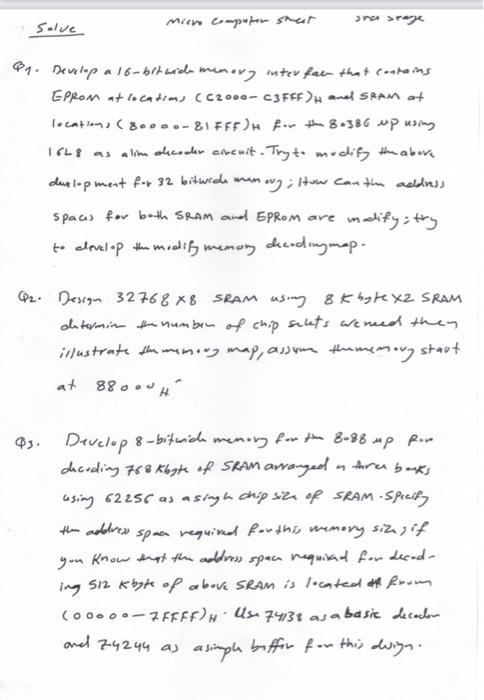 Solve
Micro Computer sheet 3rd stage
Q1. Develop a 16-bit wide memory interface that contains
EPROM at locations (C2000-C3FFF)H and SRAM at
locations (80000-81FFF)H for the 80386 μp using
16L8 as a decoder circuit. Try to modify the above
development for 32 bit wide memory; How can the address
spaces for both SRAM and EPROM are modify; try
to develop the modify memory decoding map.
Q2. Design 32768 x8 SRAM using 8 Kbyte x2 SRAM
determine the number of chip selects we need then
illustrate the memory map, assume the memory start
at 88000H
Q3. Develop 8-bit wide memory for the 8088 μp for
decoding 768 Kbyte of SRAM arranged in three banks
using 62256 as a single chip size of SRAM. Specify
the address space required for this memory size; if
you know that the address space required for decod-
ing 512 Kbyte of above SRAM is located from
(00000-7FFFF)H. Use 74138 as a basic decoder
and 74244 as a simple buffer for this design.